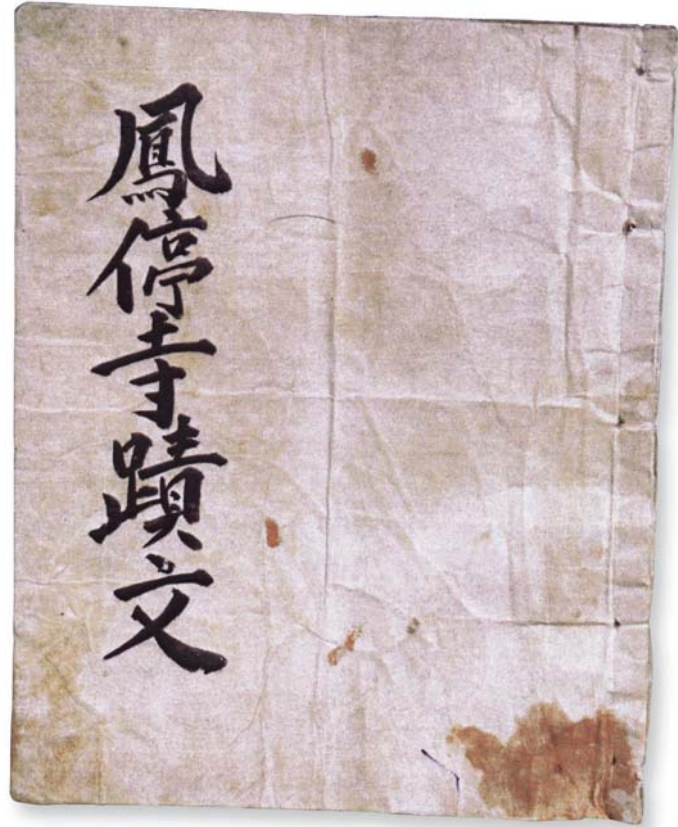 鳳停寺蹟文